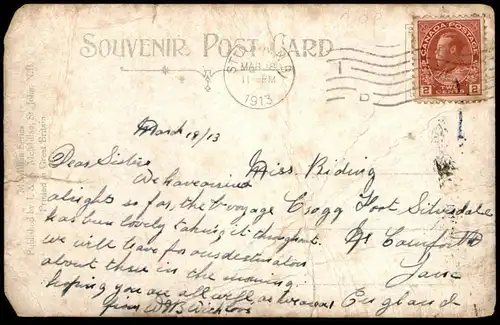 SOUVENIR POST CARD
MAR 18
PM
1913
CANADA POSTAGE
2 CENTS 2
McMillan Series
Published by J. & A. McMillan, St. John, N.B.
Printed in Great Britain
March 18/13
Dear Sister
We have arrived
alright so far, the voyage
has been lovely taking it throughout
we will leave for our destination
about three in the morning
hoping you are all well as we are
from
Miss Riding
Cragg Foot Silverdale
Nr Carnforth
Lanc
England